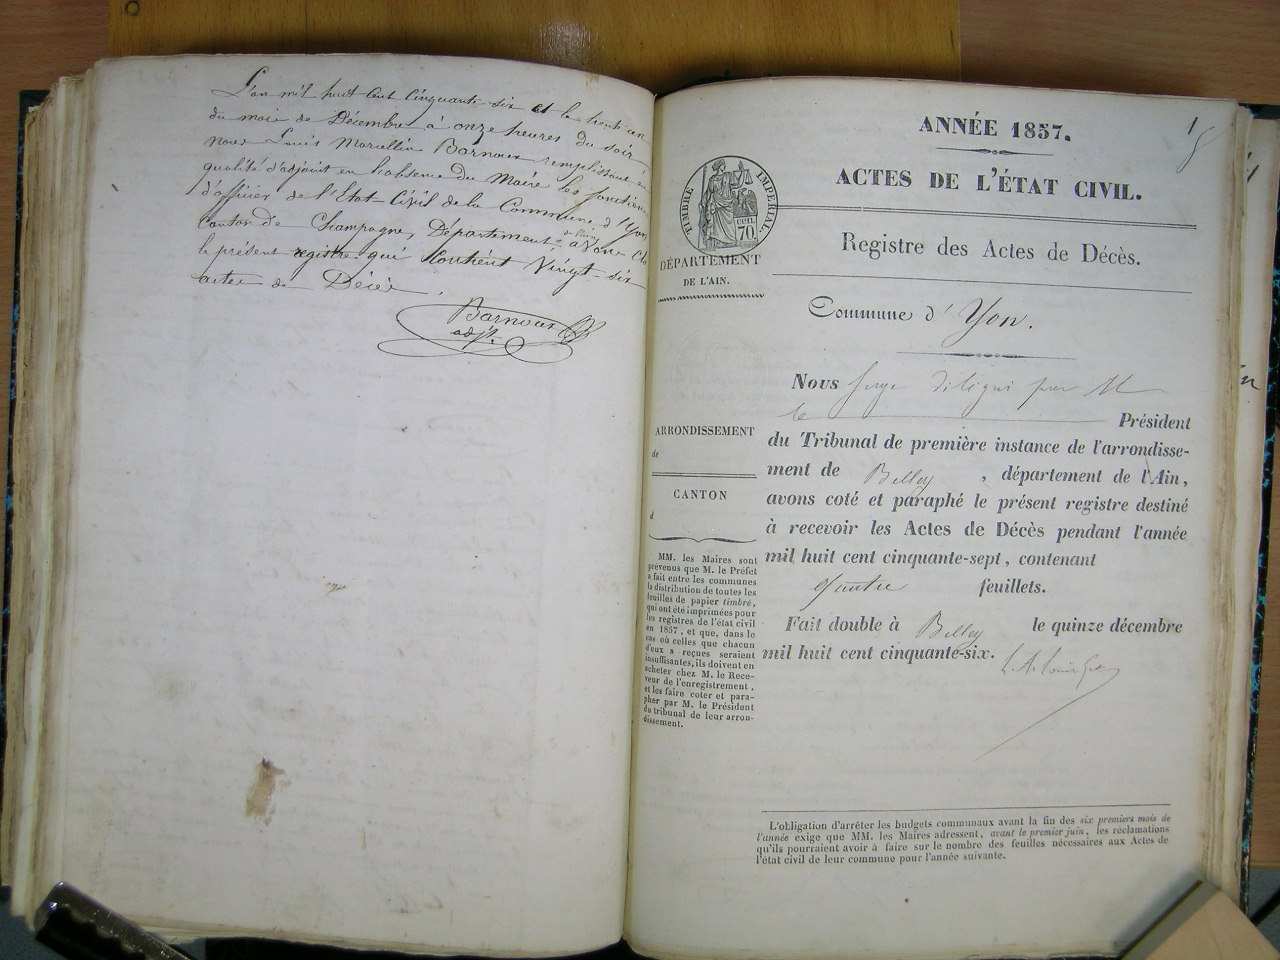 L'an mil huit cent cinquante-six et le trente un
du mois de Décembre à onze heures du soir
nous Louis Marcellin Barnoux remplissant en
qualité d'adjoint en l'absence du Maire les fonctions
d'officier de l'Etat Civil de la Commune d'Yon
Canton de Champagne, Département de l'Ain avons clos
le présent registre qui contient Vingt-six
actes de Décès.
Barnoux
adjt.
1
ANNÉE 1857.
ACTES DE L'ÉTAT CIVIL.
TIMBRE IMPÉRIAL.
70
Registre des Actes de Décès.
DÉPARTEMENT
DE L'AIN.
Commune d'Yon.
Nous Juge par M
le Président
ARRONDISSEMENT
de
du Tribunal de première instance de l'arrondisse-
ment de Belley, département de l'Ain,
CANTON
d
avons coté et paraphé le présent registre destiné
à recevoir les Actes de Décès pendant l'année
mil huit cent cinquante-sept, contenant
feuillets.
Fait double à Belley le quinze décembre
mil huit cent cinquante-six.
MM. les Maires sont
prévenus que M. le Préfet
a fait entre les communes
la distribution de toutes les
feuilles de papier timbré,
qui ont été imprimées pour
les registres de l'état civil
en 1857, et que, dans le
cas où celles que chacun
d'eux a reçues seraient
insuffisantes, ils doivent en
acheter chez M. le Rece-
veur de l'enregistrement,
et les faire coter et para-
pher par M. le Président
du tribunal de leur arron-
dissement.
L'obligation d'arrêter les budgets communaux avant la fin des six premiers mois de
l'année exige que MM. les Maires adressent, avant le premier juin, les réclamations
qu'ils pourraient avoir à faire sur le nombre des feuilles nécessaires aux Actes de
l'état civil de leur commune pour l'année suivante.